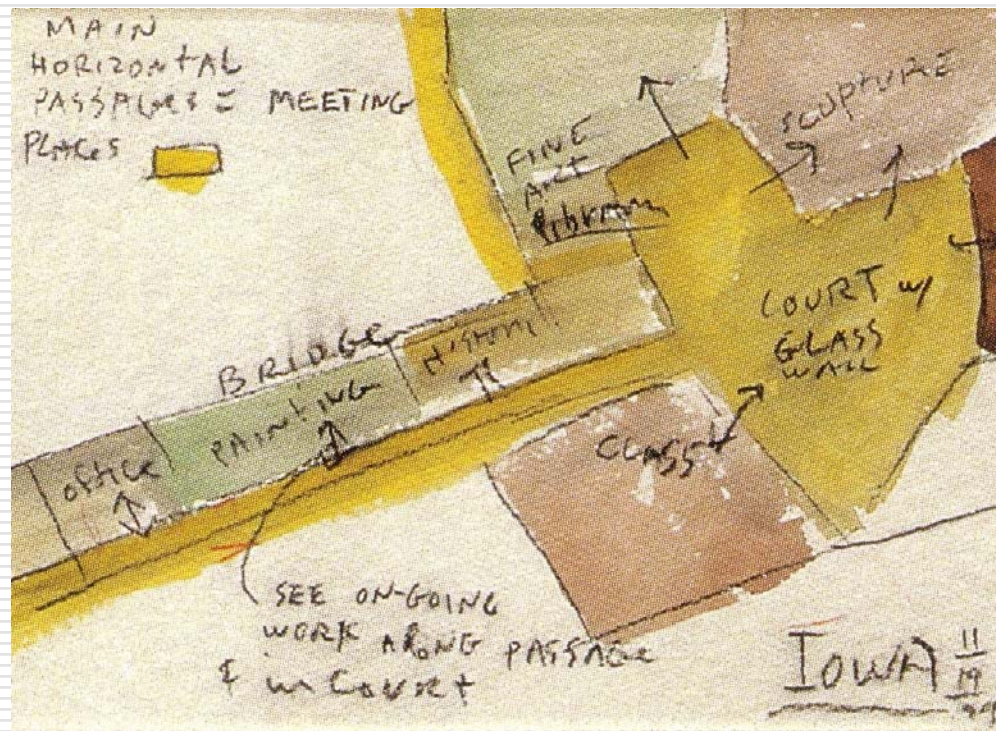 MAIN
HORIZONTAL
PASSAGES = MEETING
PLACES
FINE
ART
SCUPTURE
COURT w/
GLASS
WALL
BRIDGE
HISTORY
PAINTING
OFFICE
CLASS
SEE ON-GOING
WORK ALONG PASSAGE
& in COURT
IOWA 11
19